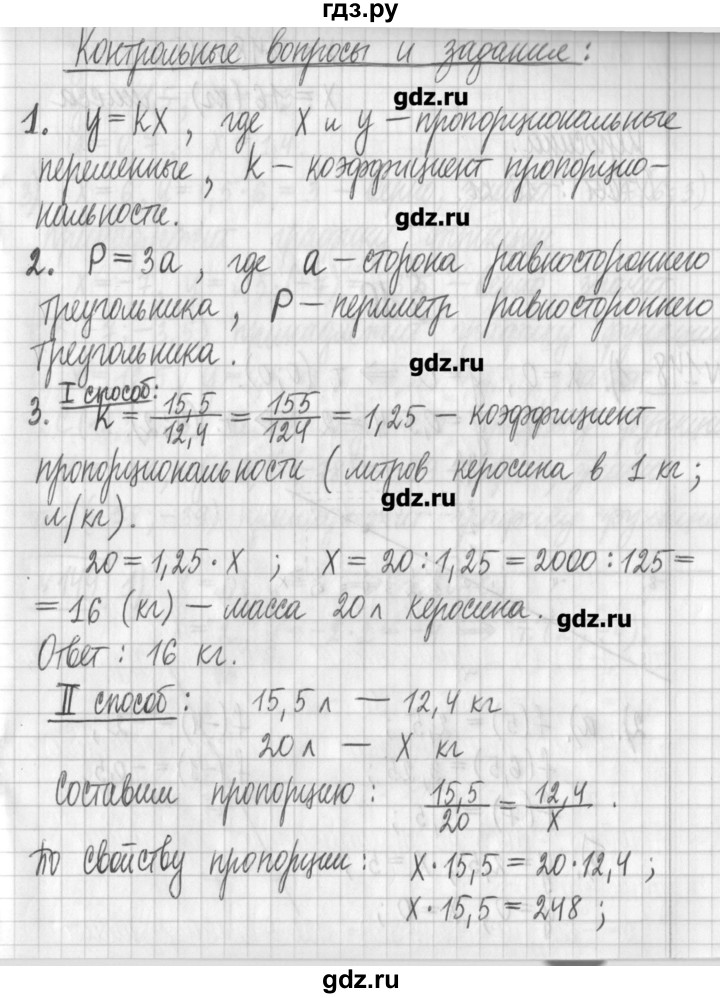 гдз.ру
Контрольные вопросы и задания:
gdz.ru
1. y = kx, где x и y – пропорциональные
переменные, k – коэффициент пропорцио-
нальности.
gdz.ru
2. P = 3a, где a – сторона равностороннего
треугольника, P – периметр равностороннего
треугольника.
gdz.ru
3. I способ:
k = 15,5/12,4 = 155/124 = 1,25 – коэффициент
пропорциональности (литров керосина в 1 кг;
gdz.ru
л/кг).
20 = 1,25 · x ; x = 20 : 1,25 = 2000 : 125 =
= 16 (кг) – масса 20 л керосина.
gdz.ru
Ответ: 16 кг.
II способ: 15,5 л — 12,4 кг
20 л — x кг
Составим пропорцию: 15,5/20 = 12,4/x .
По свойству пропорции: x · 15,5 = 20 · 12,4 ;
x · 15,5 = 248 ;
gdz.ru